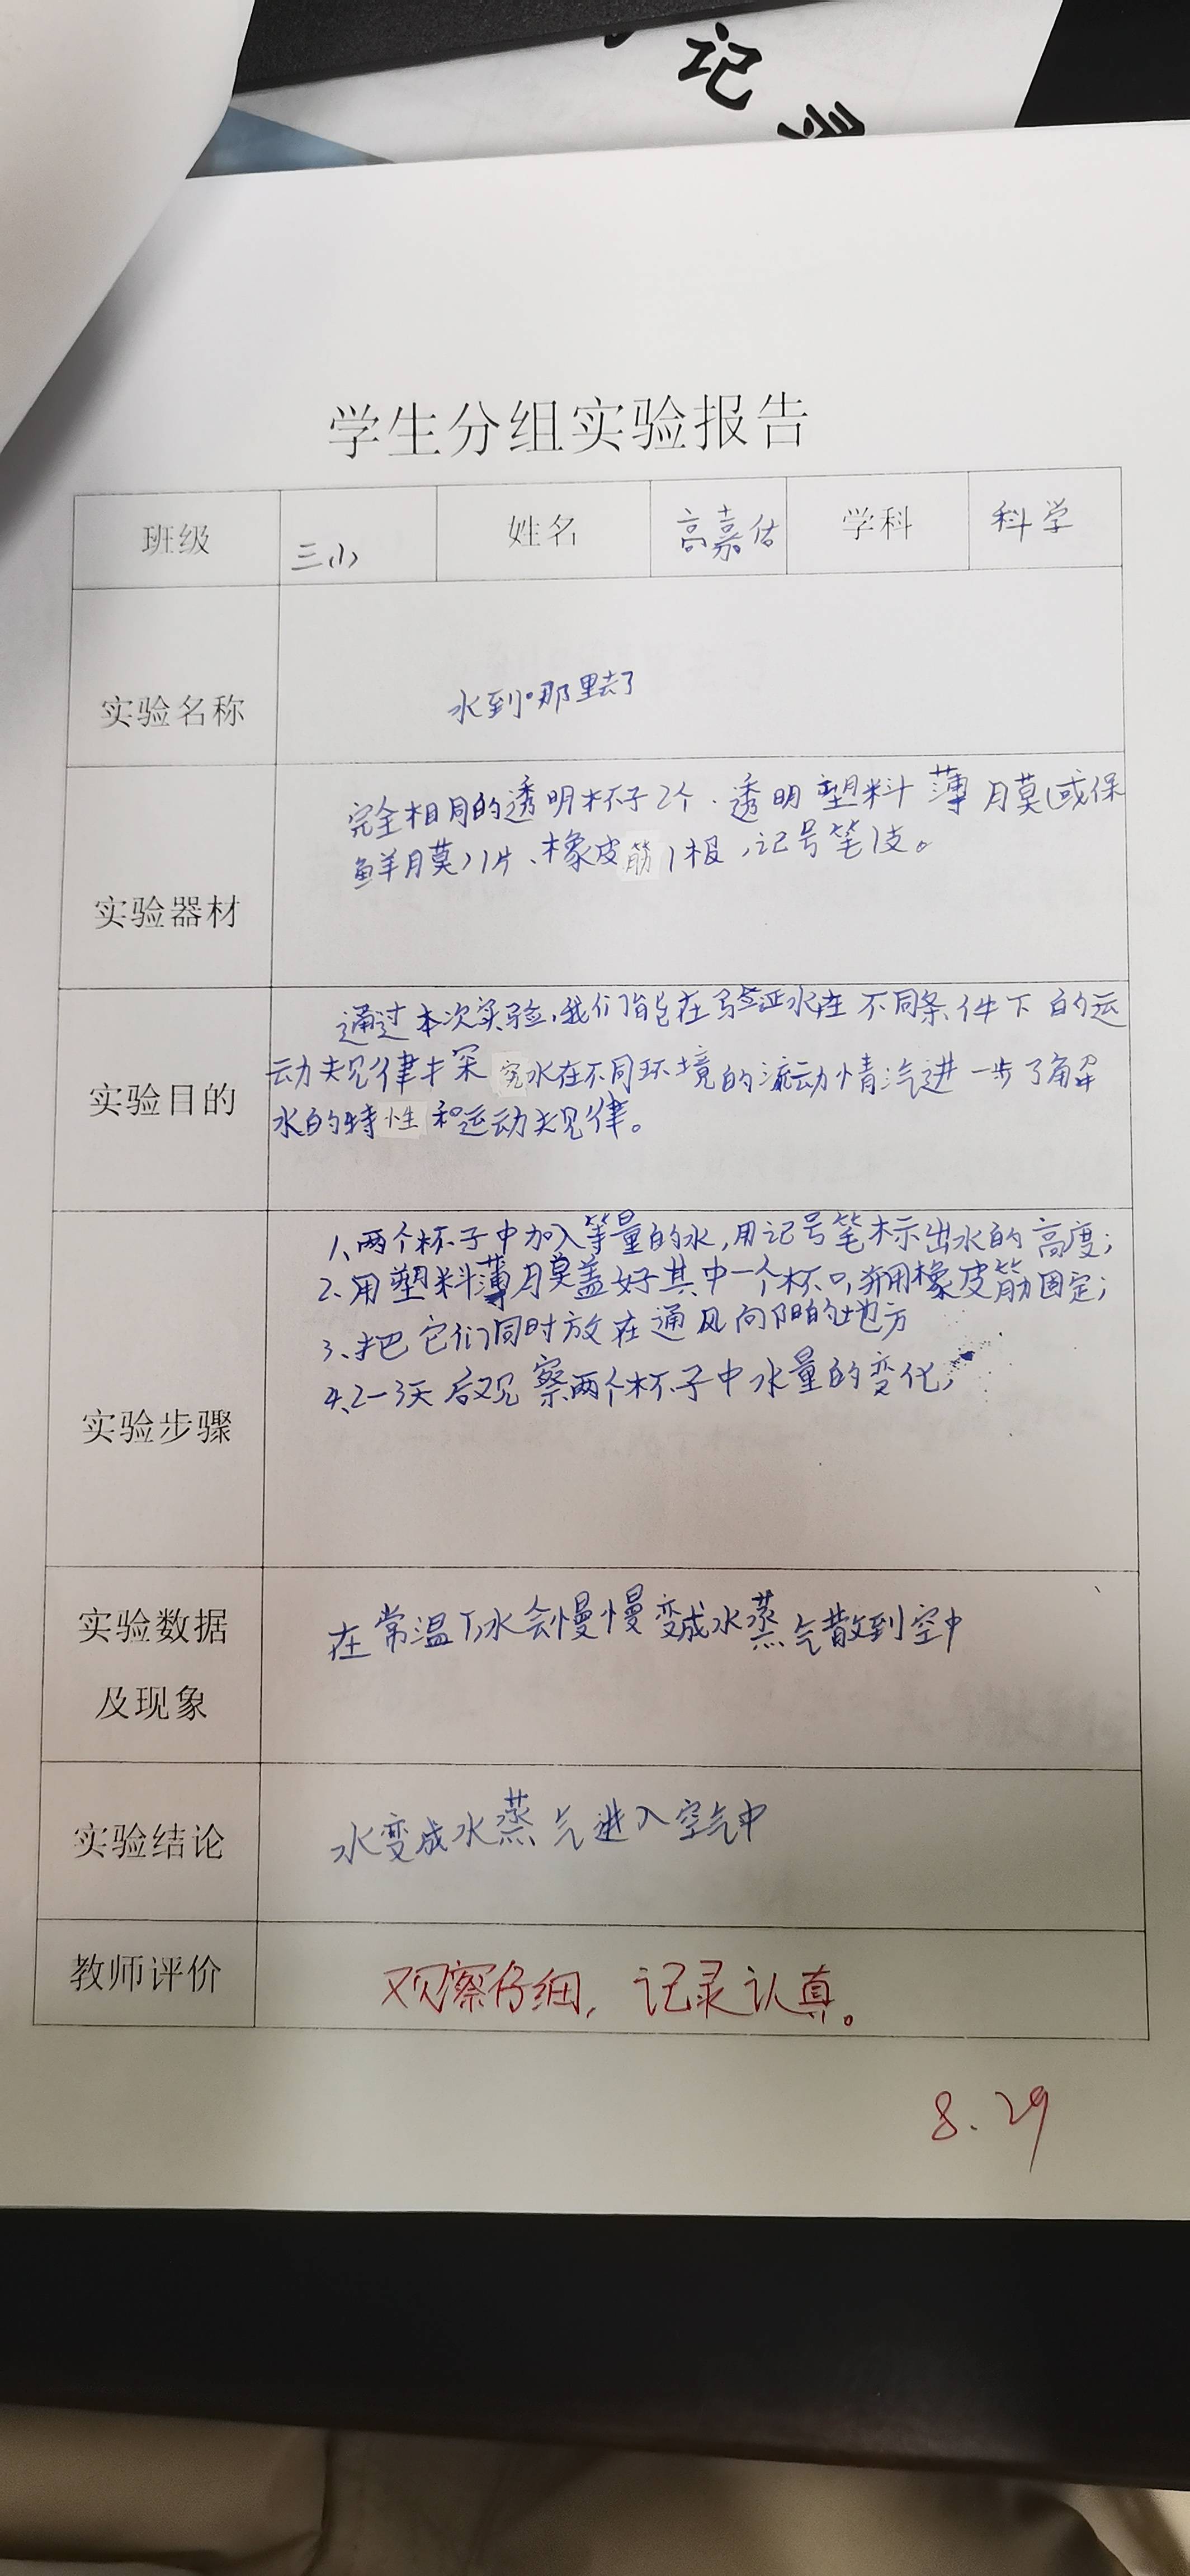 记录
学生分组实验报告
班级 三(1) 姓名 高嘉估 学科 科学
实验名称 水到哪里去了
实验器材
完全相同的透明杯子2个、透明塑料薄膜(或保
鲜膜)1片、橡皮筋1根,记号笔1支。
实验目的
通过本次实验,我们能在验证水在不同条件下的运
动规律扌探究水在不同环境的流动情汽进一步了解
水的特性和运动规律。
实验步骤
1、两个杯子中加入等量的水,用记号笔标示出水的高度;
2、用塑料薄膜盖好其中一个杯口,并用橡皮筋固定;
3、把它们同时放在通风向阳的地方
4、2-3天后观察两个杯子中水量的变化,
实验数据
及现象
在常温下,水会慢慢变成水蒸气散到空中
实验结论 水变成水蒸气进入空气中
教师评价 观察仔细,记录认真。
8.29